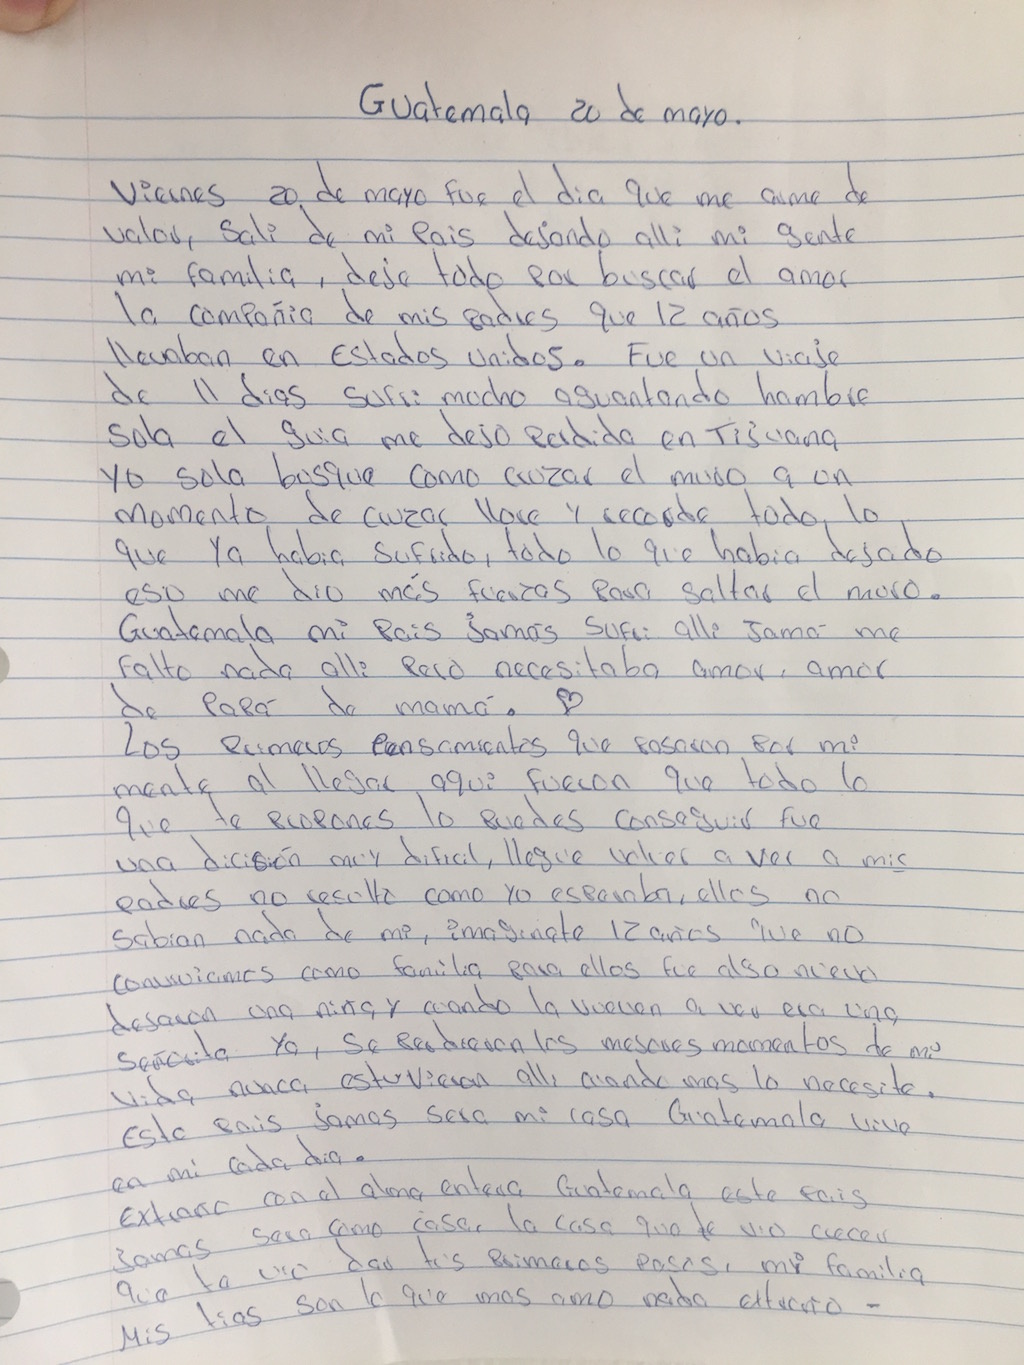 Guatemala 20 de mayo.
Viernes 20, de mayo fue el dia que me arme de
valor, Sali de mi Pais dejando alli mi gente
mi familia, deje todo por buscar el amor
la compañia de mis padres que 12 años
llevaban en Estados unidos. Fue un viaje
de 11 dias sufri mucho aguantando hambre
sola el guia me dejo Perdida en Tijuana
yo sola busque como cruzar el muro a un
momento de cruzar llore y recorde todo lo
que ya habia sufrido, todo lo que habia dejado
eso me dio más fuerzas para saltar el muro.
Guatemala mi Pais jamás sufri alli jamá me
falto nada alli Pero necesitaba amor, amor
de Papá de mamá. ♡
Los Primeros Pensamientos que pasaron por mi
mente al llegar aqui fueron que todo lo
que te propones lo puedes conseguir fue
una dicisión muy dificil, llegue volver a ver a mis
padres no resulto como yo esperaba, ellos no
sabian nada de mi, imaginate 12 años que no
convivimos como familia para ellos fue algo nuevo
dejaron una niña y cuando la vueven a ver era una
señorita ya, se Perdieron los mejores momentos de mi
vida nunca estuvieron alli cuando mas lo necesite.
Este Pais jamas sera mi casa Guatemala vive
en mi cada dia.
Extraño con el alma entera Guatemala este Pais
jamas sera como casa, la casa que te vio crecer
que te vio dar tus Primeros Pasos, mi familia
Mis tias son lo que mas amo nada extraño -